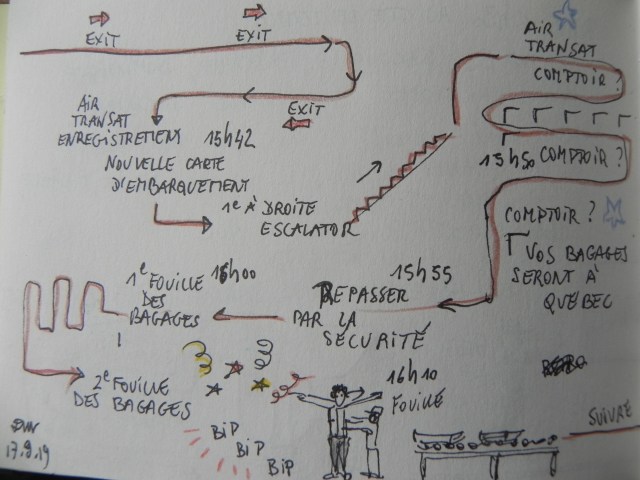 EXIT
EXIT
EXIT
AIR
TRANSAT
ENREGISTREMENT 15h42
NOUVELLE CARTE
D'EMBARQUEMENT
1e À DROITE
ESCALATOR
AIR
TRANSAT
COMPTOIR ?
15h50 COMPTOIR ?
COMPTOIR ?
VOS BAGAGES
SERONT À
QUÉBEC
15h55
REPASSER
PAR LA
SÉCURITÉ
16h00
1e FOUILLE
DES
BAGAGES
!
2e FOUILLE
DES BAGAGES
BIP
BIP
BIP
16h10
FOUILLE
SUIVRE
17.9.19